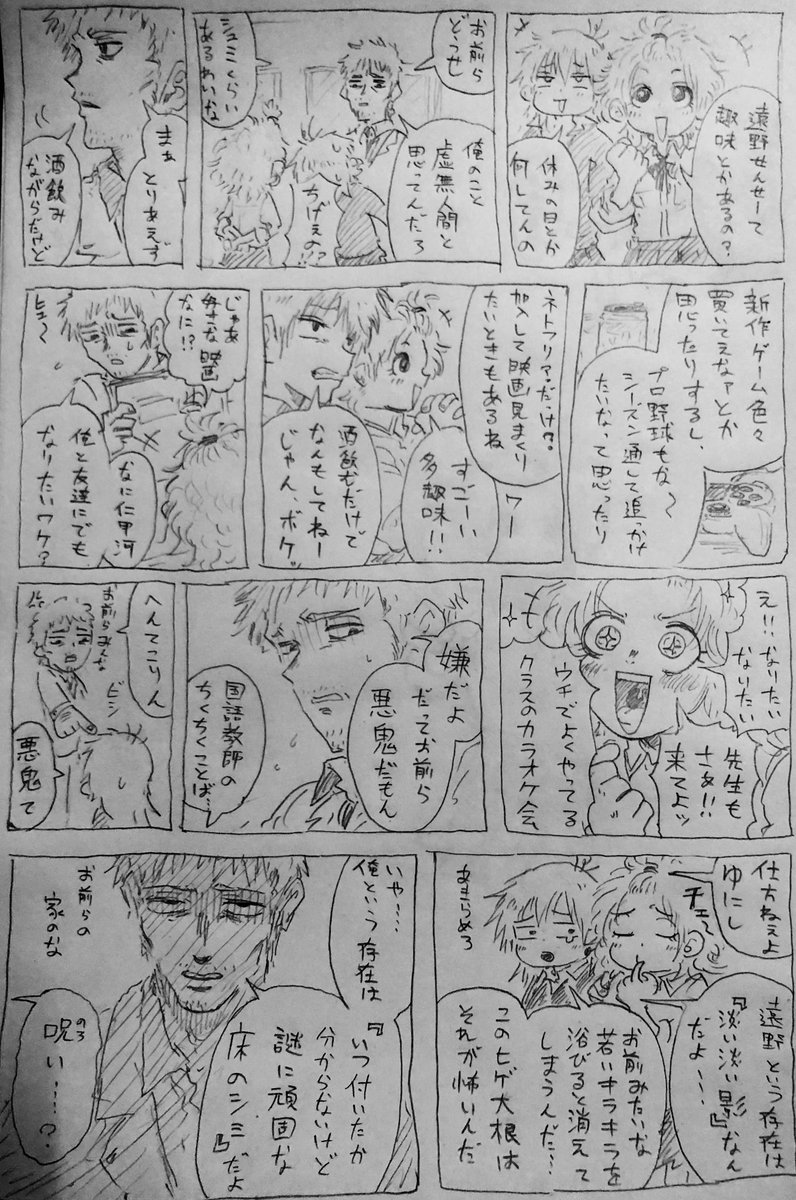 遠野せんせーて
趣味とかあるの?
休みの日とか
何してんの
お前ら
どうせ
俺のこと
虚無人間と
思ってんだろ
ちげぇの?!
シュミくらい
あるわいな
まぁ
とりあえず
酒飲み
ながらだけど
新作ゲーム色々
買いてえなァとか
思ったりするし、
プロ野球もな〜
シーズン通して追っかけ
たいなって思ったり
ネトフリァ?だっけ?
加入して映画見まくり
たいときもあるね
ワー
すごーい
多趣味!!
酒飲むだけで
なんもしてねー
じゃん、ボケッ
じゃあ
好きな映画
なに!?
ヒュ〜
なに仁甲河
俺と友達にでも
なりたいワケ?
え!!なりたい
なりたい
先生も
さぁ!!
来てよッ
ウチでよくやってる
クラスのカラオケ会
嫌だよ
だってお前ら
悪鬼だもん
国語教師の
ちくちくことば…
へんてこりん
お前らみんな
ビシ
悪鬼て
仕方ねぇよ
ゆにし
チェ〜
遠野という存在は
『淡い淡い影』なん
だよ……
お前みたいな
若いキラキラを
浴びると消えて
しまうんだ…
このヒゲ大根は
それが怖いんだ
あきらめろ
いや…
俺という存在は
『いつ付いたか
分からないけど
謎に頑固な
床のシミ』だよ
お前らの
家のな
呪い……?
のろ